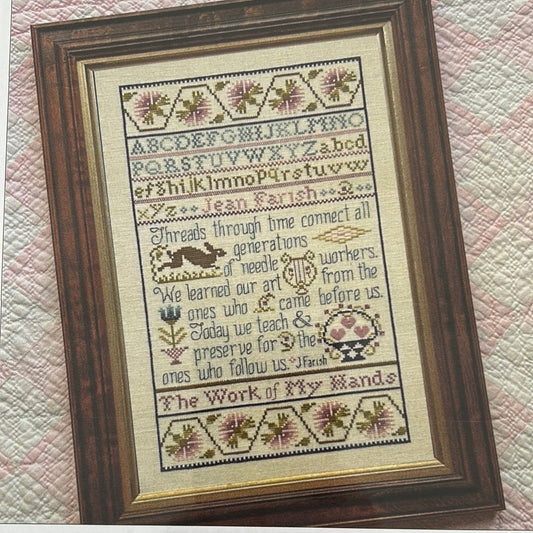 ABCDEFGHIJKLMNO
PQRSTUVWXYZ abcd
efghijklmnopqrstuvw
xyz Jean Farish
Threads through time connect all
generations
of needle workers.
We learned our art from the
ones who came before us.
Today we teach &
preserve for the
ones who follow us. J Farish
The Work of My Hands